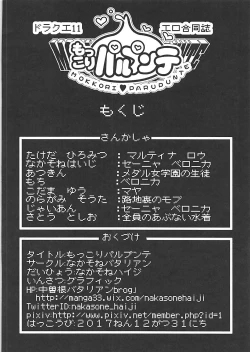 ドラクエ11
エロ合同誌
もっこりパルプンテ
MOKKORI♥PARUPUNTE
もくじ
さんかしゃ
たけだ ひろみつ : マルティナ ロウ
なかそねはいじ : セーニャ ベロニカ
あつきん : メダル女学園の生徒
もち : ベロニカ
こだま ゆう : マヤ
のらがみ そうた : 路地裏のモブ
じゃいあん : セーニャ ベロニカ
さとう としお : 全員のあぶない水着
おくづけ
タイトル:もっこりパルプンテ
サークル:なかそねバタリアン
だいひょう:なかそねハイジ
いんさつ:グラフィック
HP:中曽根バタリアンbrog)
http://manga33.wix.com/nakasonehaiji
TwitterID:nakasone_haiji
pixiv:http://www.pixiv.net/member.php?id=1
はっこうび:2017ねん12がつ31にち